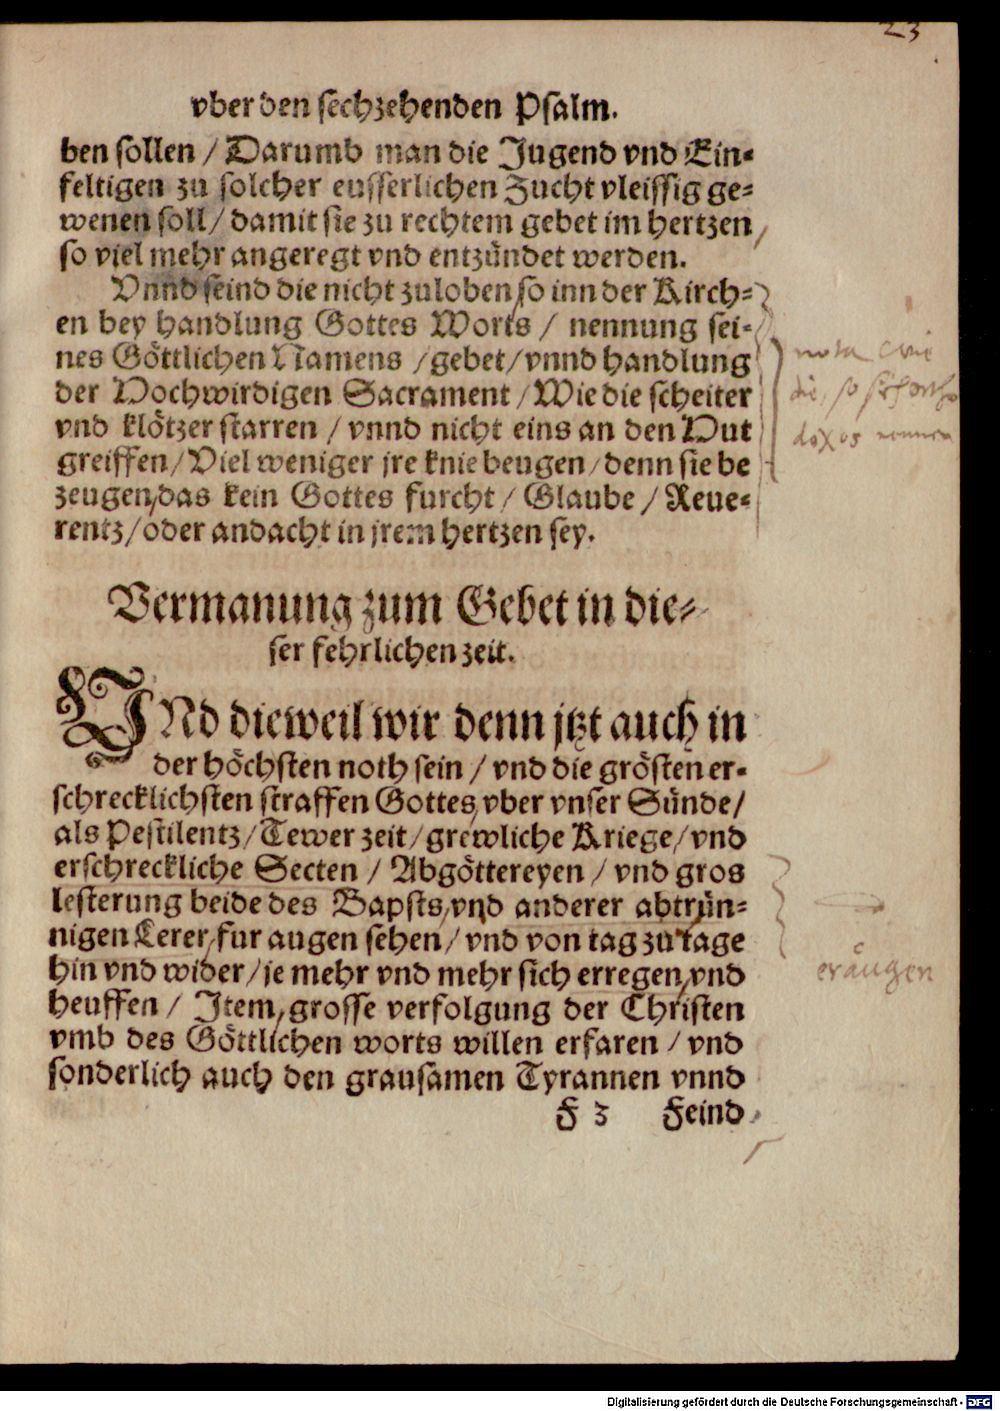 23
vber den sechzehenden Psalm.
ben sollen / Darumb man die Jugend vnd Ein⸗
feltigen zu solcher eusserlichen Zucht vleissig ge⸗
wenen soll / damit sie zu rechtem gebet im hertzen /
so viel mehr angeregt vnd entzündet werden.
Vnnd seind die nicht zuloben / so inn der Kirch⸗
en bey handlung Gottes Worts / nennung sei⸗
nes Göttlichen Namens / gebet / vnnd handlung
der Hochwirdigen Sacrament / Wie die scheiter
vnd klötzer starren / vnnd nicht eins an den Hut
greiffen / Viel weniger jre knie beugen / denn sie be
zeugen / das kein Gottes furcht / Glaube / Reue⸗
rentz / oder andacht in jrem hertzen sey.
nota wie
die, so sich ortho
doxos nennen
Vermanung zum Gebet in die⸗
ser fehrlichen zeit.
VNd dieweil wir denn jtzt auch in
der höchsten noth sein / vnd die grösten er⸗
schrecklichsten straffen Gottes / vber vnser Sünde /
als Pestilentz / Tewer zeit / grewliche Kriege / vnd
erschreckliche Secten / Abgöttereyen / vnd gros
lesterung beide des Bapsts / vnd anderer abtrün⸗
nigen Lerer / fur augen sehen / vnd von tag zu tage
hin vnd wider / je mehr vnd mehr sich erregen / vnd
heuffen / Item / grosse verfolgung der Christen
vmb des Göttlichen worts willen erfaren / vnd
sonderlich auch den grausamen Tyrannen vnnd
eräugen
F 3 Feind
Digitalisierung gefördert durch die Deutsche Forschungsgemeinschaft - DFG